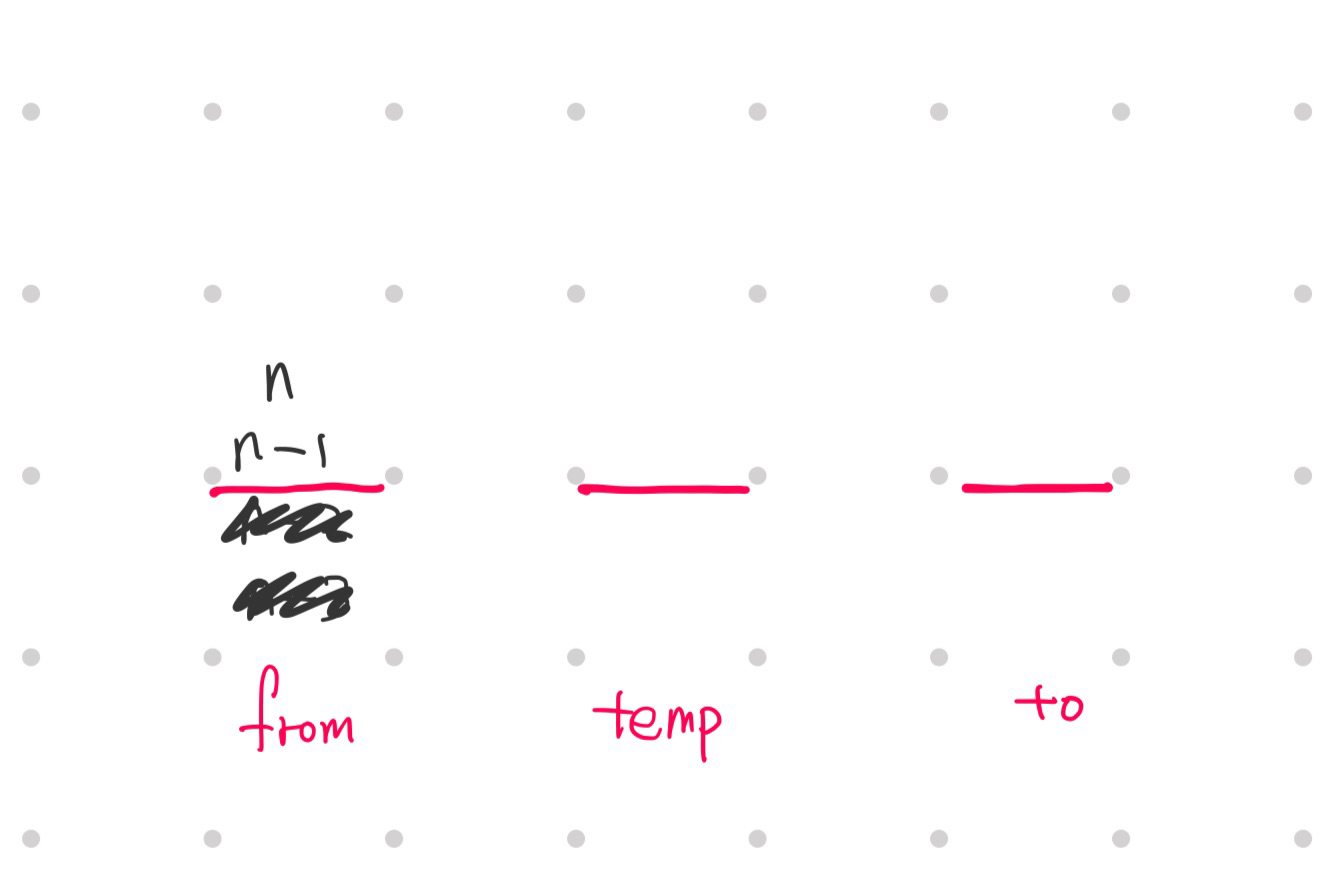 n
n-1
from temp to